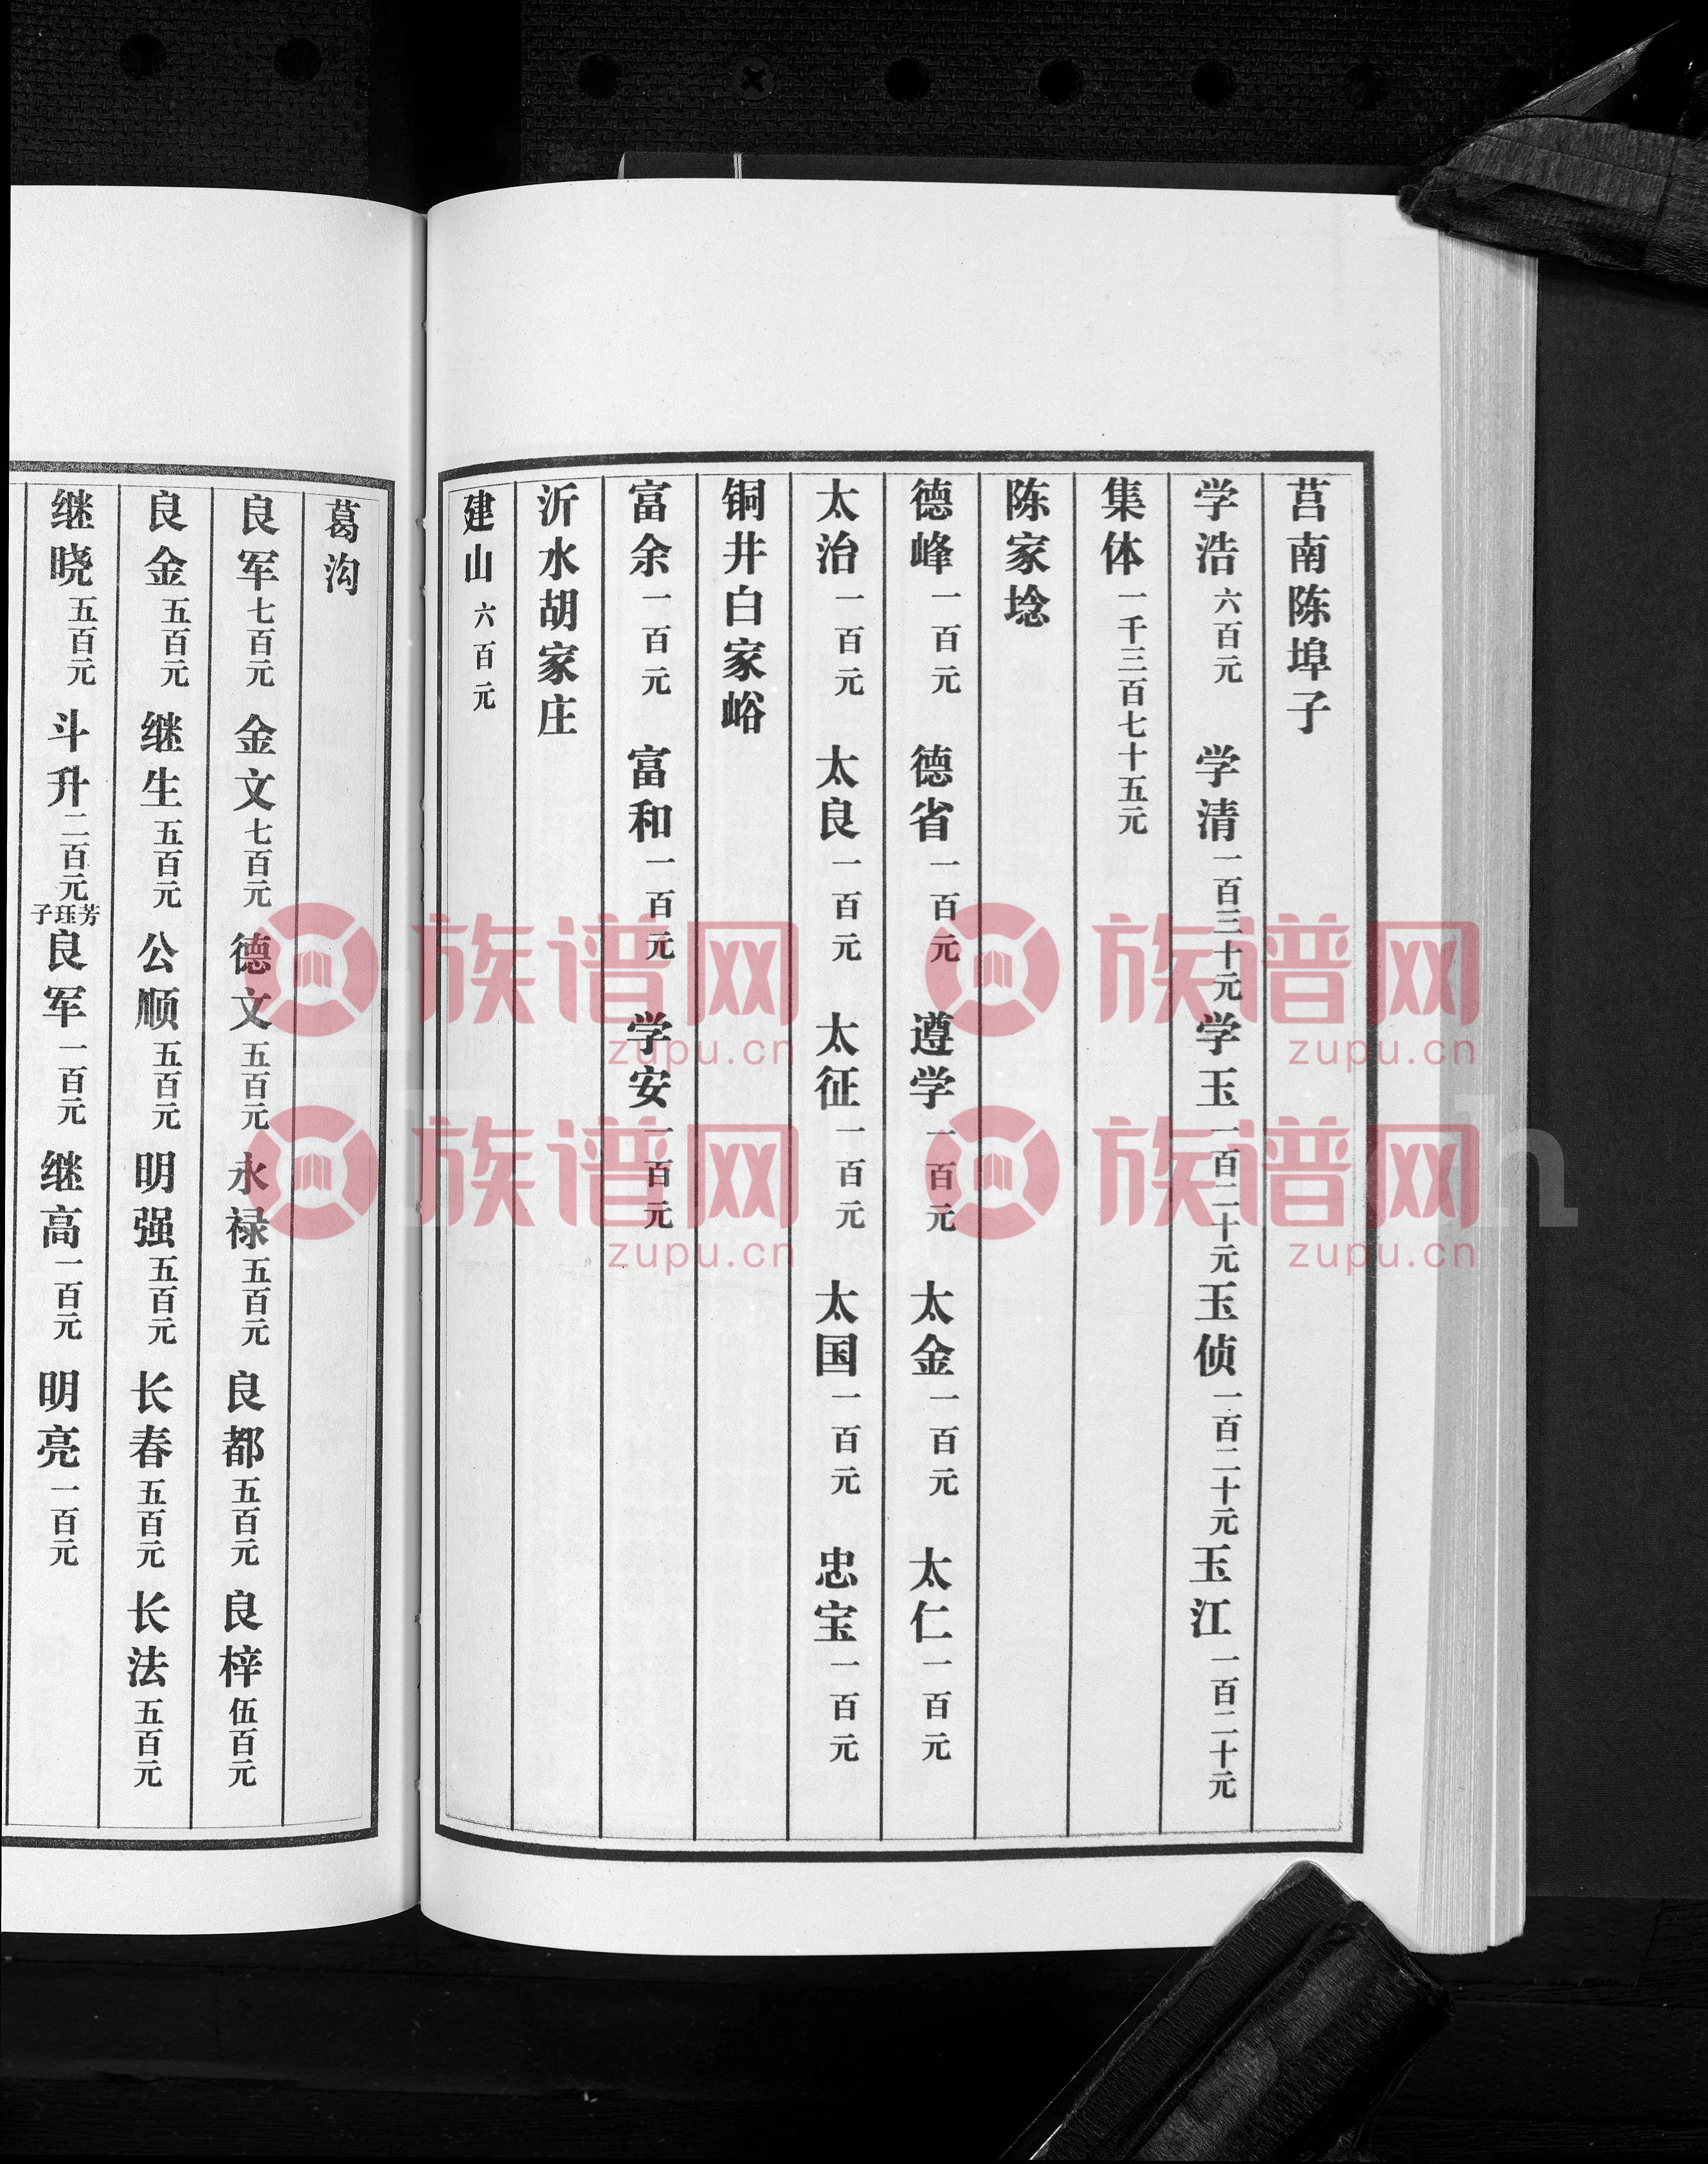 莒南陈埠子
学浩 六百元 学清 一百三十元 学玉 一百二十元 玉侦 一百二十元 玉江 一百二十元
集体 一千三百七十五元
陈家埝
德峰 一百元 德省 一百元 遵学 一百元 太金 一百元 太仁 一百元
太治 一百元 太良 一百元 太征 一百元 太国 一百元 忠宝 一百元
铜井白家峪
富余 一百元 富和 一百元 学安 一百元
沂水胡家庄
建山 六百元
葛沟
良军 七百元 金文 七百元 德文 五百元 永禄 五百元 良都 五百元 良梓 伍百元
良金 五百元 继生 五百元 公顺 五百元 明强 五百元 长春 五百元 长法 五百元
继晓 五百元 斗升 二百元 芳珏子 良军 一百元 继高 一百元 明亮 一百元
族谱网 族谱网
zupu.cn zupu.cn
族谱网 族谱网
zupu.cn zupu.cn